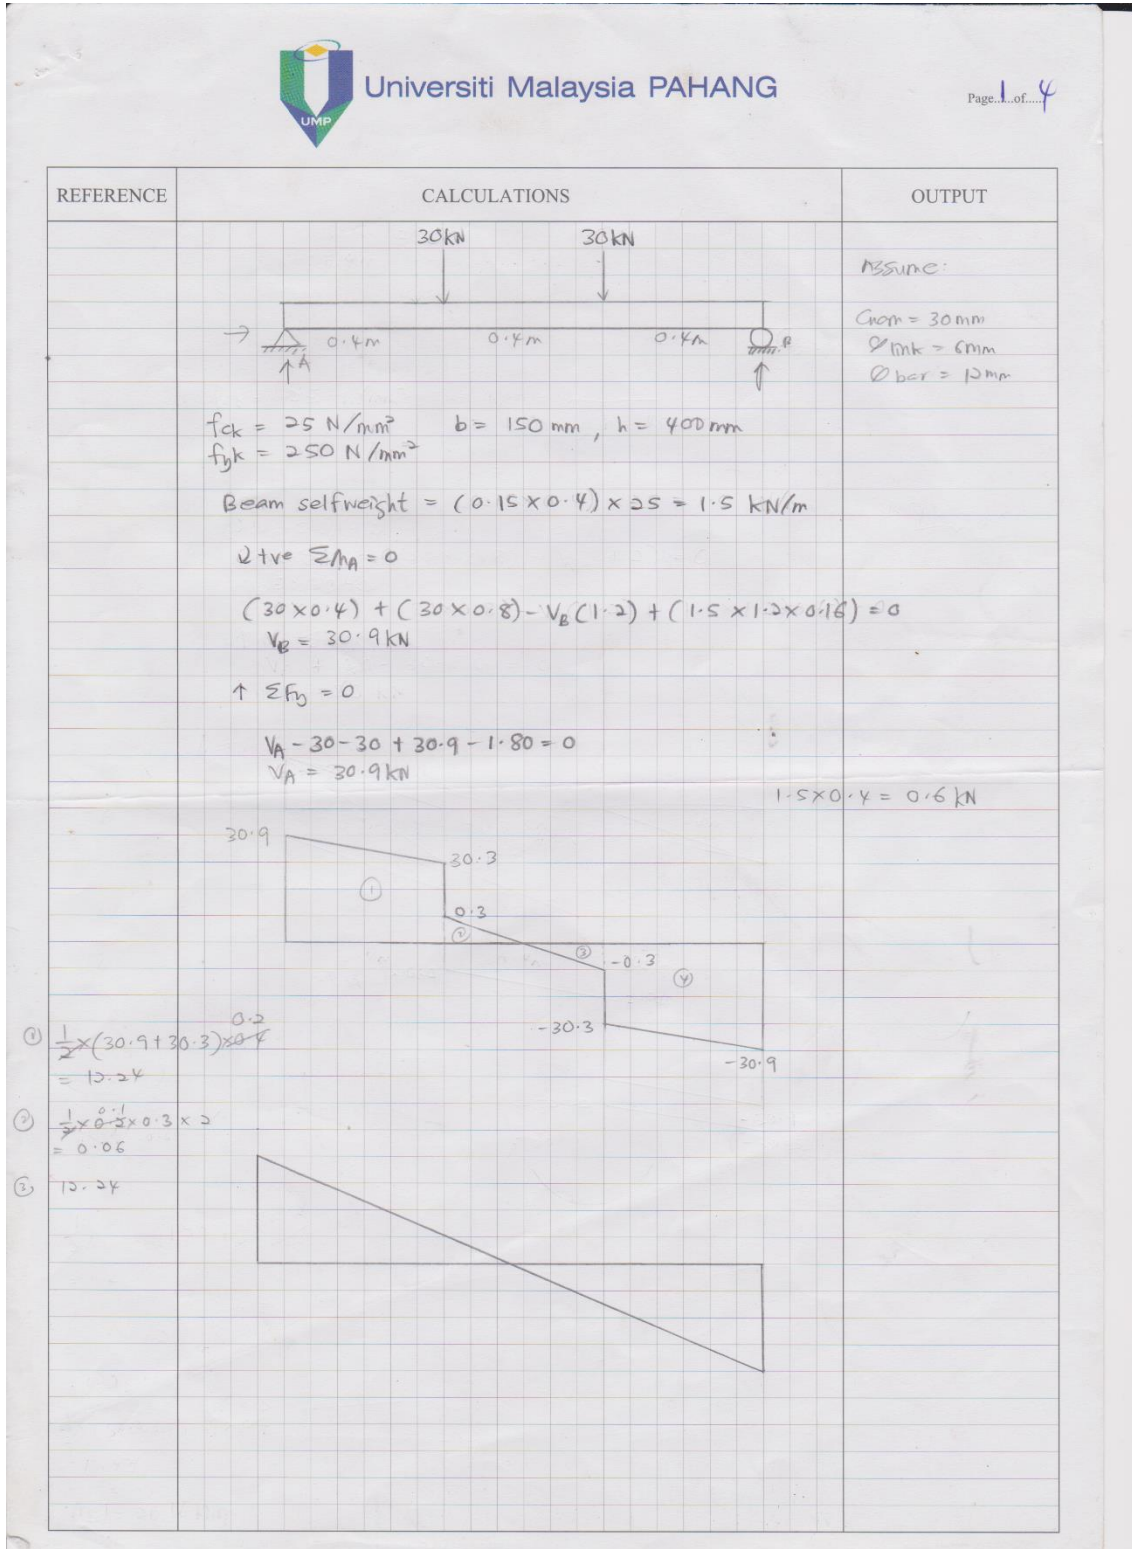 UMP
Universiti Malaysia PAHANG
Page..1..of.....4
REFERENCE
CALCULATIONS
OUTPUT
30kN 30kN
Assume:
Cnom = 30mm
Ø link = 6mm
Ø bar = 12mm
→ 0.4m 0.4m 0.4m
A B
fck = 25 N/mm² b = 150 mm, h = 400 mm
fyk = 250 N/mm²
Beam selfweight = (0.15 × 0.4) × 25 = 1.5 kN/m
+ve ΣMA = 0
(30 × 0.4) + (30 × 0.8) - VB (1.2) + (1.5 × 1.2 × 0.16) = 0
VB = 30.9 kN
↑ ΣFy = 0
VA - 30 - 30 + 30.9 - 1.80 = 0
VA = 30.9 kN
1.5×0.4 = 0.6 kN
30.9
30.3
①
0.3
②
③
-0.3
④
-30.3
-30.9
0.2
① 1/2 × (30.9 + 30.3) × 0.4
= 12.24
0.1
② 1/2 × 0.2 × 0.3 × 2
= 0.06
③ 12.24